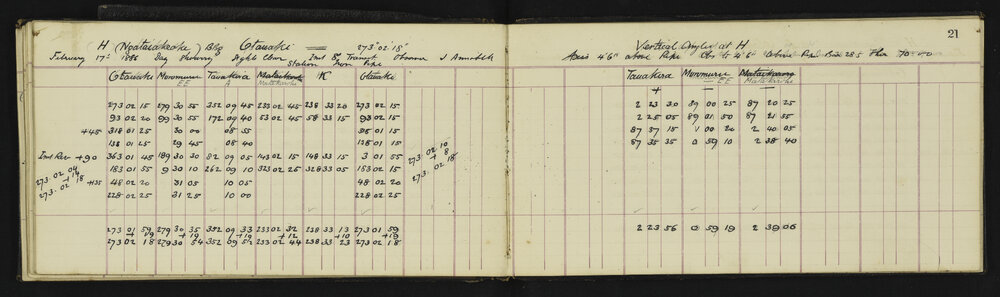 21
H (Ngatarakeke) Bdg Otauaki 273.02.18
Vertical Angles at H
February 17th 1886 Day Showery Light Clear Inst 8" Transit Observer J Annabell
Station Iron Pipe
Axis 4'6" above Pipe Obs to 4'6" above
Otauaki Moumoui Tauakira K Otauaki
EE A Matakaroke
Tauakira Moumoui
+ EE Matakaroke
273 02 15 279 30 55 352 09 45 233 02 45 238 33 20 273 02 15
2 23 30 89 00 25 87 20 25
93 02 20 99 30 55 172 09 40 53 02 45 58 33 15 93 02 15
2 25 05 89 01 50 87 21 55
+45 318 01 25 30 00 08 55 318 01 15
87 37 15 1 00 20 2 40 05
138 01 25 29 45 08 40 138 01 15
87 35 35 0 59 10 2 38 40
Inst Rev +90 363 01 45 189 30 30 82 09 05 143 02 15 148 33 15 3 01 55
273 02 10
+ 8
273. 02 18
183 01 55 9 30 10 262 09 10 323 02 25 328 33 05 183 02 15
273 02 04
+ 14
273. 02 18
+135 48 02 20 31 05 10 05 48 02 20
228 02 25 31 25 10 00 228 02 25
273 01 59 279 30 35 352 09 33 233 02 32 238 33 13 273 01 59
2 23 56 0 59 19 2 39 06
+ 19 + 19 + 19 + 12 + 10 + 19
273 02 18 279 30 54 352 09 52 233 02 44 238 33 23 273 02 18